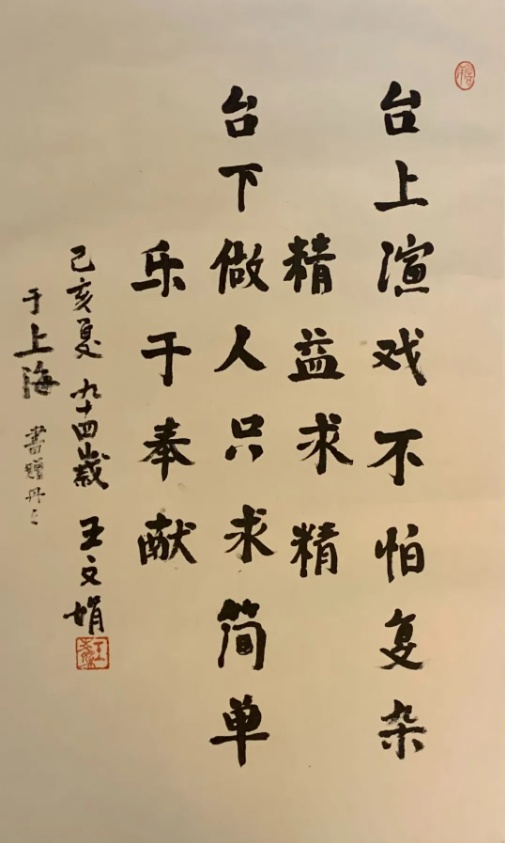 台上演戏不怕复杂
精益求精
台下做人只求简单
乐于奉献
己亥夏 九十四歲 王文娟
于上海 書贈丹丹